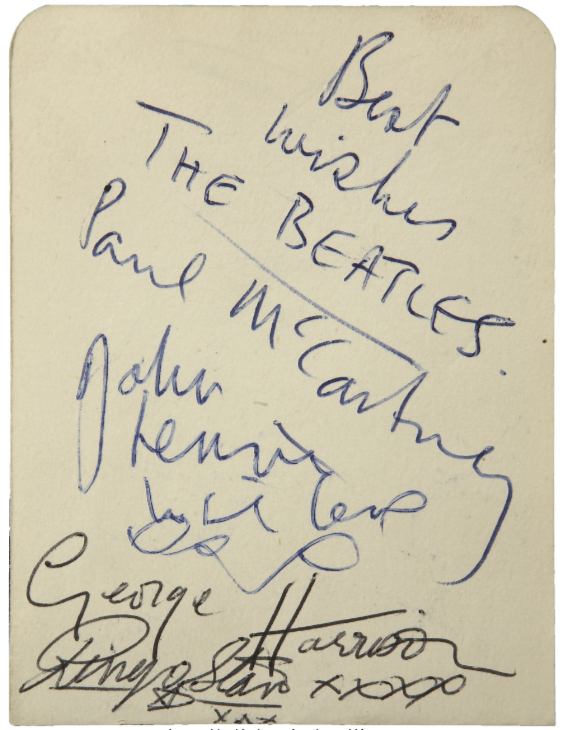 Best
wishes
THE BEATLES.
Paul McCartney
John
Lennon
George
Harrison
Ringo Starr xxxxx
xxx